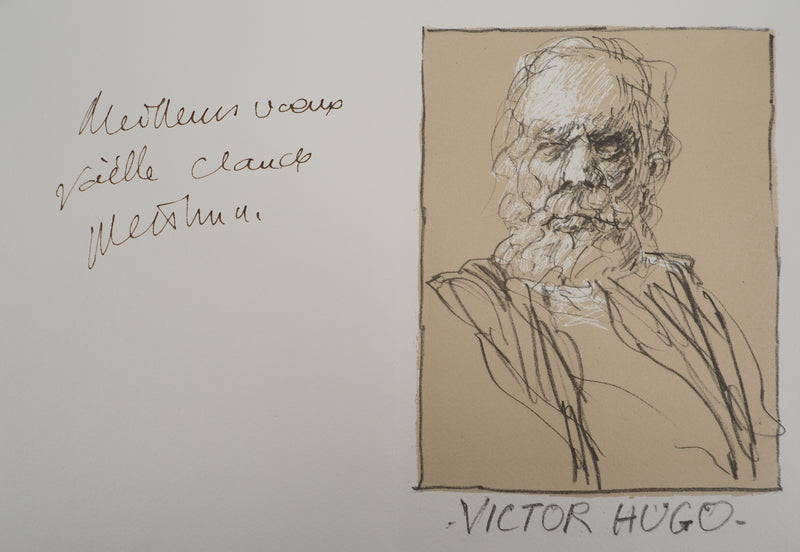 Meilleurs vœux
Joëlle Claude
Weisbuch.
- VICTOR HUGO -